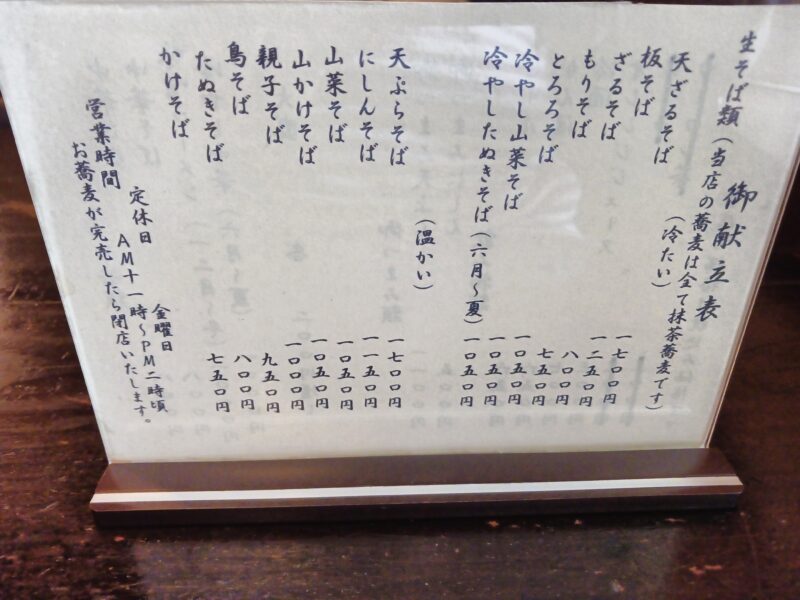 御献立表
生そば類(当店の蕎麦は全て抹茶蕎麦です)
(冷たい)
天ざるそば 一七〇〇円
板そば 一二五〇円
ざるそば 八〇〇円
もりそば 七五〇円
とろろそば 一〇五〇円
冷やし山菜そば 一〇五〇円
冷やしたぬきそば(六月〜夏) 一〇五〇円
(温かい)
天ぷらそば 一七〇〇円
にしんそば 一一五〇円
山菜そば 一〇五〇円
山かけそば 一〇五〇円
親子そば 一〇〇〇円
鳥そば 九五〇円
たぬきそば 八〇〇円
かけそば 七五〇円
定休日 金曜日
営業時間 AM十一時〜PM二時頃
お蕎麦が完売したら閉店いたします。